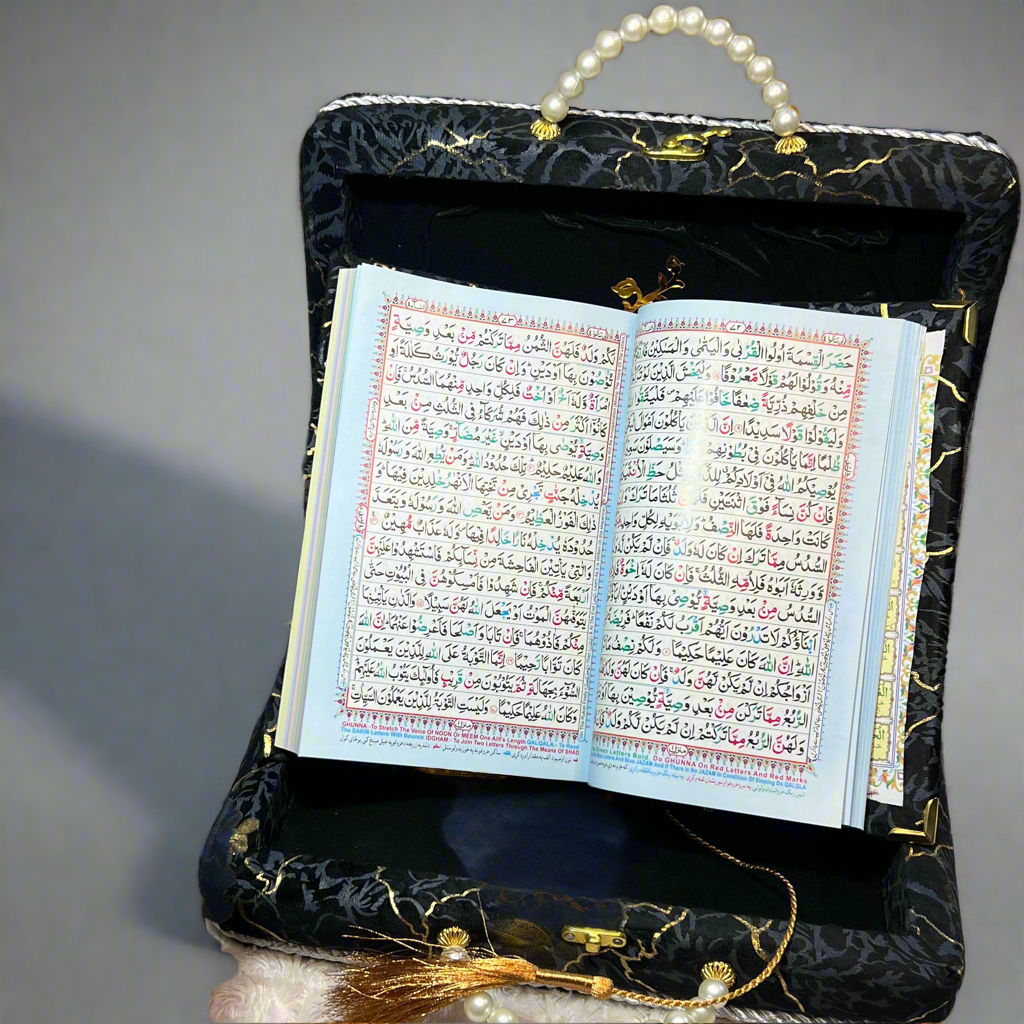 ٧٢
حَضَرَ الْقِسْمَةَ اُولُوا الْقُرْبٰى وَالْيَتٰمٰى وَالْمَسٰكِيْنُ
مِّنْهُ وَقُوْلُوْا لَهُمْ قَوْلًا مَّعْرُوْفًا وَلْيَخْشَ الَّذِيْنَ لَوْ
مِنْ خَلْفِهِمْ ذُرِّيَّةً ضِعٰفًا خَافُوْا عَلَيْهِمْ فَلْيَتَّقُوا
وَلْيَقُوْلُوْا قَوْلًا سَدِيْدًا اِنَّ الَّذِيْنَ يَاْكُلُوْنَ اَمْوَالَ
ظُلْمًا اِنَّمَا يَاْكُلُوْنَ فِيْ بُطُوْنِهِمْ وَسَيَصْلَوْنَ
يُوْصِيْكُمُ اللّٰهُ فِيْٓ اَوْلَادِكُمْ حَظِّ
فَاِنْ كُنَّ نِسَآءً فَوْقَ اثْنَتَيْنِ ثُلُثَا مَا تَرَكَ
كَانَتْ وَاحِدَةً فَلَهَا النِّصْفُ وَلِاَبَوَيْهِ لِكُلِّ وَاحِدٍ
السُّدُسُ مِمَّا تَرَكَ اِنْ كَانَ لَهٗ وَلَدٌ فَاِنْ لَّمْ يَكُنْ لَّهٗ
وَّوَرِثَهٗٓ اَبَوٰهُ فَلِاُمِّهِ الثُّلُثُ فَاِنْ كَانَ لَهٗٓ اِخْوَةٌ
السُّدُسُ مِنْ بَعْدِ وَصِيَّةٍ يُّوْصِيْ بِهَآ اَوْ دَيْنٍ
وَاَبْنَآؤُكُمْ لَا تَدْرُوْنَ اَيُّهُمْ اَقْرَبُ لَكُمْ نَفْعًا فَرِيْضَةً
اللّٰهِ اِنَّ اللّٰهَ كَانَ عَلِيْمًا حَكِيْمًا وَلَكُمْ نِصْفُ مَا
اَزْوَاجُكُمْ اِنْ لَّمْ يَكُنْ لَّهُنَّ وَلَدٌ فَاِنْ كَانَ لَهُنَّ
الرُّبُعُ مِمَّا تَرَكْنَ مِنْ بَعْدِ وَصِيَّةٍ يُّوْصِيْنَ بِهَآ
وَلَهُنَّ الرُّبُعُ مِمَّا تَرَكْتُمْ اِنْ لَّمْ يَكُنْ لَّكُمْ وَلَدٌ
Letters Bold, Do GHUNNA On Red Letters And Red Marks
And Blue JAZAM And If There Is No JAZAM In Condition Of Stoping Do QALQLA
٧٣
لَكُمْ وَلَدٌ فَلَهُنَّ الثُّمُنُ مِمَّا تَرَكْتُمْ مِّنْ بَعْدِ وَصِيَّةٍ
تُوْصُوْنَ بِهَآ اَوْ دَيْنٍ وَاِنْ كَانَ رَجُلٌ يُّوْرَثُ كَلٰلَةً اَوِ
امْرَاَةٌ وَّلَهٗٓ اَخٌ اَوْ اُخْتٌ فَلِكُلِّ وَاحِدٍ مِّنْهُمَا السُّدُسُ فَاِنْ
كَانُوْٓا اَكْثَرَ مِنْ ذٰلِكَ فَهُمْ شُرَكَآءُ فِي الثُّلُثِ مِنْ بَعْدِ
وَصِيَّةٍ يُّوْصٰى بِهَآ اَوْ دَيْنٍ غَيْرَ مُضَآرٍّ وَصِيَّةً مِّنَ اللّٰهِ
وَاللّٰهُ عَلِيْمٌ حَلِيْمٌ تِلْكَ حُدُوْدُ اللّٰهِ وَمَنْ يُّطِعِ اللّٰهَ وَرَسُوْلَهٗ
يُدْخِلْهُ جَنّٰتٍ تَجْرِيْ مِنْ تَحْتِهَا الْاَنْهٰرُ خٰلِدِيْنَ فِيْهَا وَ
ذٰلِكَ الْفَوْزُ الْعَظِيْمُ وَمَنْ يَّعْصِ اللّٰهَ وَرَسُوْلَهٗ وَيَتَعَدَّ
حُدُوْدَهٗ يُدْخِلْهُ نَارًا خَالِدًا فِيْهَا وَلَهٗ عَذَابٌ مُّهِيْنٌ
وَالّٰتِيْ يَاْتِيْنَ الْفَاحِشَةَ مِنْ نِّسَآئِكُمْ فَاسْتَشْهِدُوْا عَلَيْهِنَّ
اَرْبَعَةً مِّنْكُمْ فَاِنْ شَهِدُوْا فَاَمْسِكُوْهُنَّ فِي الْبُيُوْتِ حَتّٰى
يَتَوَفّٰهُنَّ الْمَوْتُ اَوْ يَجْعَلَ اللّٰهُ لَهُنَّ سَبِيْلًا وَالَّذٰنِ يَاْتِيٰنِهَا
مِنْكُمْ فَاٰذُوْهُمَا فَاِنْ تَابَا وَاَصْلَحَا فَاَعْرِضُوْا عَنْهُمَا اِنَّ اللّٰهَ
كَانَ تَوَّابًا رَّحِيْمًا اِنَّمَا التَّوْبَةُ عَلَى اللّٰهِ لِلَّذِيْنَ يَعْمَلُوْنَ
السُّوْٓءَ بِجَهَالَةٍ ثُمَّ يَتُوْبُوْنَ مِنْ قَرِيْبٍ فَاُولٰٓئِكَ يَتُوْبُ اللّٰهُ عَلَيْهِمْ
وَكَانَ اللّٰهُ عَلِيْمًا حَكِيْمًا وَلَيْسَتِ التَّوْبَةُ لِلَّذِيْنَ يَعْمَلُوْنَ السَّيِّاٰتِ
GHUNNA:-To Stretch The Voice Of NOON Or MEEM One Alif's Length QALQALA:- To Read
The SAKIN Letters With Bounce IDGHAM:- To Join Two Letters Through The Means Of SHAD